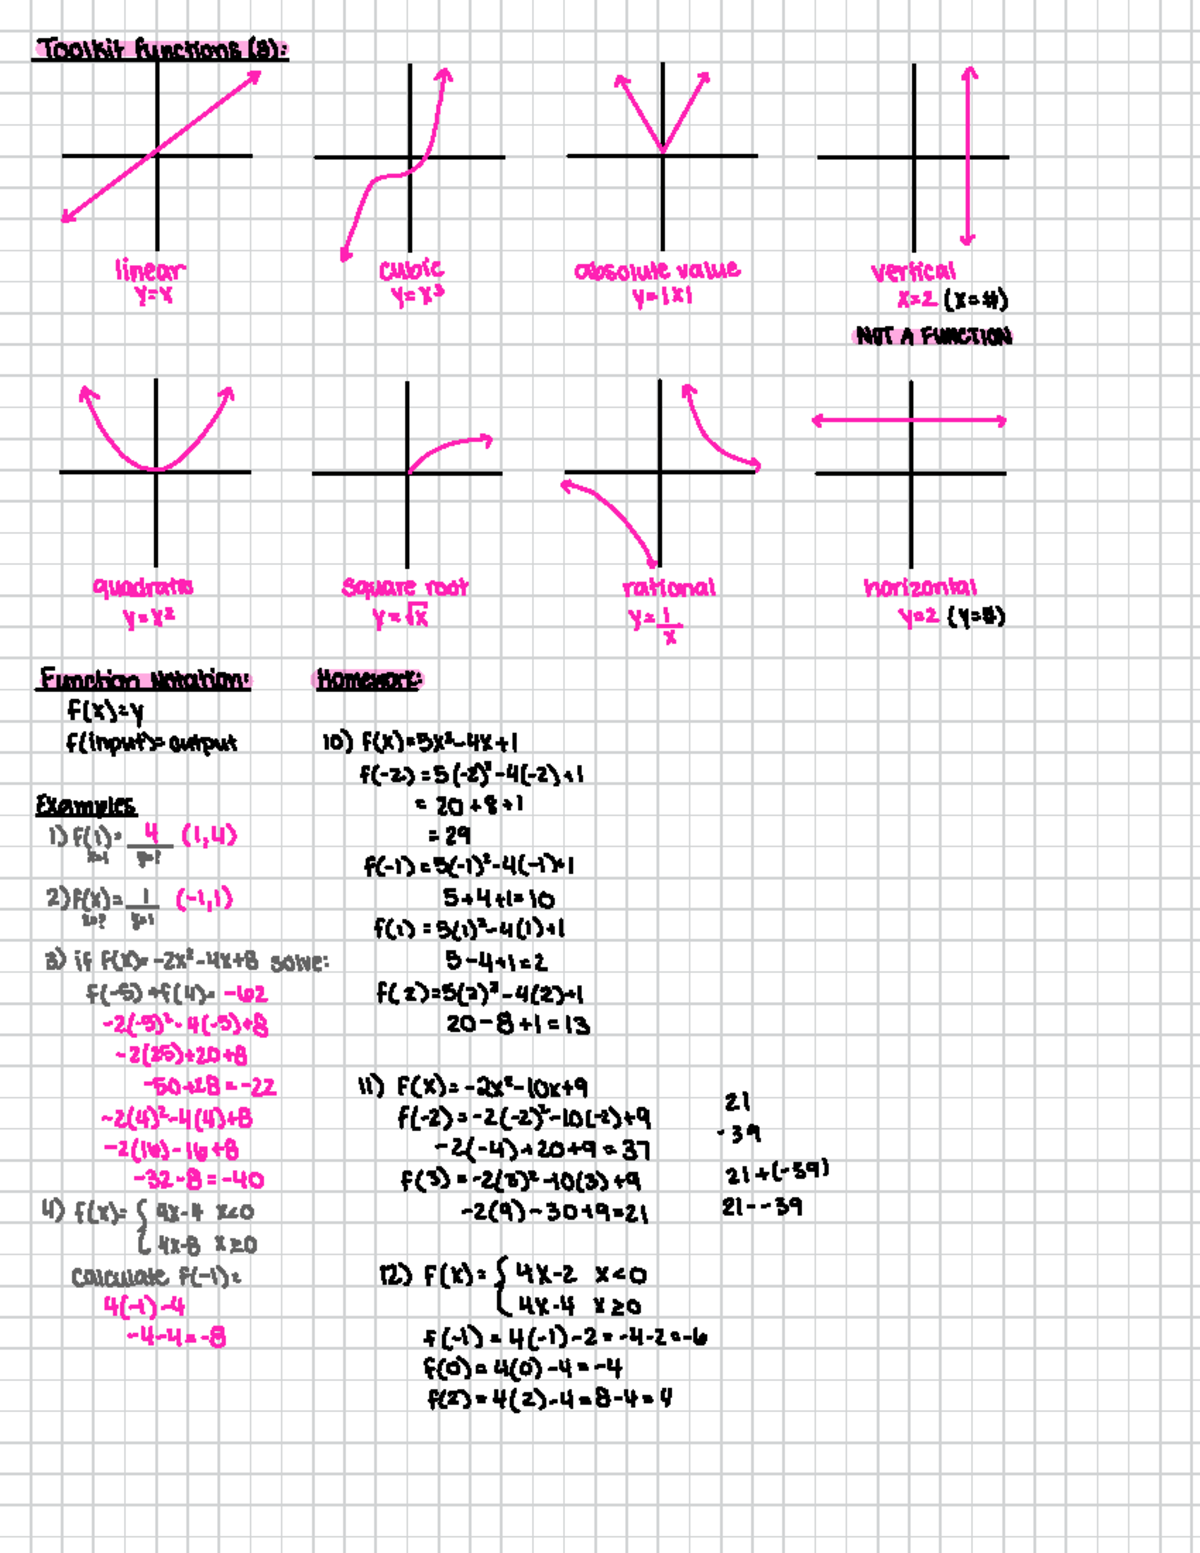 Toolkit functions (8):
linear
y=x
cubic
y=x³
absolute value
y=|x|
vertical
x=2 (x=#)
NOT A FUNCTION
quadratic
y=x²
square root
y=√x
rational
y=1/x
horizontal
y=2 (y=#)
Function Notation:
f(x)=y
f(input)=output
Examples
1) f(1)= 4 (1,4)
x=1 y=?
2) f(x)= 1 (-1,1)
x=? y=1
3) if f(x)=-2x²-4x+8 solve:
f(-5)+f(4)= -62
-2(-5)²-4(-5)+8
-2(25)+20+8
-50+28=-22
-2(4)²-4(4)+8
-2(16)-16+8
-32-8=-40
4) f(x)= { 4x-4 x<0
{ 4x-8 x≥0
calculate f(-1)=
4(-1)-4
-4-4=-8
Homework:
10) f(x)=5x²-4x+1
f(-2)=5(-2)²-4(-2)+1
= 20+8+1
= 29
f(-1)=5(-1)²-4(-1)+1
5+4+1=10
f(1)=5(1)²-4(1)+1
5-4+1=2
f(2)=5(2)²-4(2)+1
20-8+1=13
11) f(x)=-2x²-10x+9
f(-2)=-2(-2)²-10(-2)+9
-2(-4)+20+9=37
f(3)=-2(3)²-10(3)+9
-2(9)-30+9=21
21
-39
21+(-59)
21--39
12) f(x)= { 4x-2 x<0
{ 4x-4 x≥0
f(-1)=4(-1)-2=-4-2=-6
f(0)=4(0)-4=-4
f(2)=4(2)-4=8-4=4